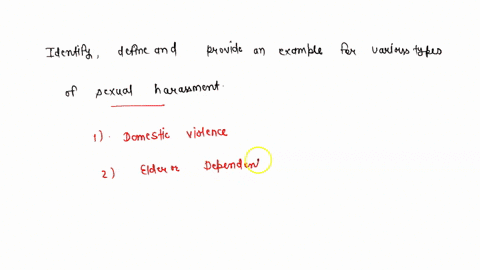 Identify, define and provide an example for various types
of sexual harassment.
1). Domestic violence
2) Elder or Dependen